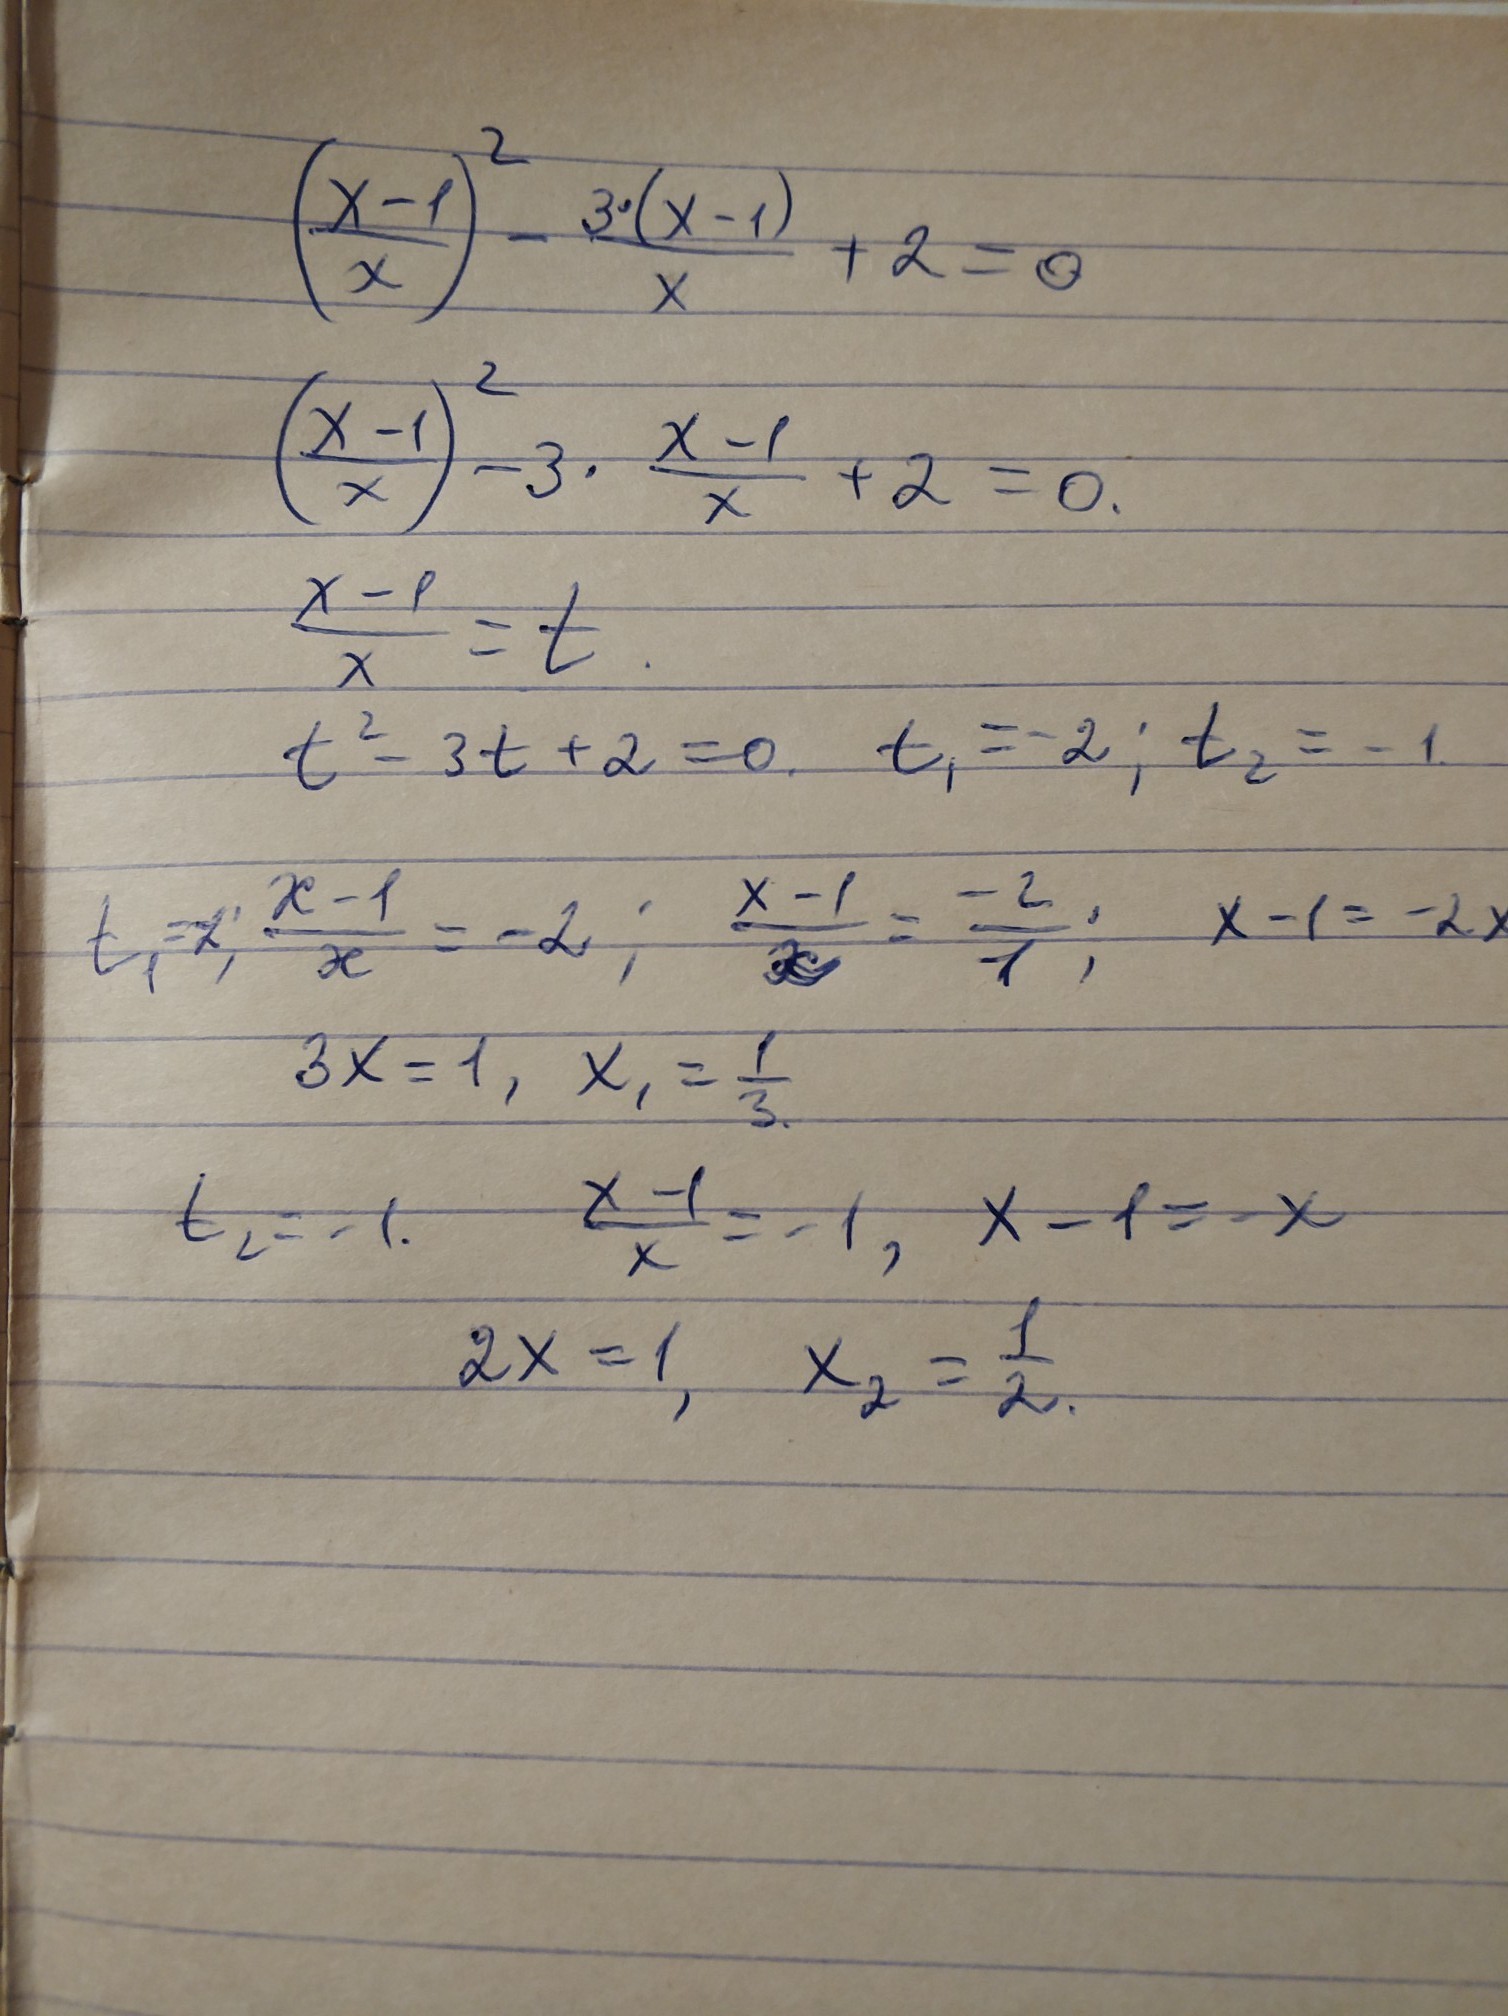 ((x-1)/x)² - (3·(x-1))/x + 2 = 0
((x-1)/x)² - 3 · (x-1)/x + 2 = 0.
(x-1)/x = t.
t² - 3t + 2 = 0. t₁ = -2; t₂ = -1.
t₁ = -2; (x-1)/x = -2; (x-1)/x = -2/1; x-1 = -2x
3x = 1, x₁ = 1/3.
t₂ = -1. (x-1)/x = -1, x-1 = -x
2x = 1, x₂ = 1/2.